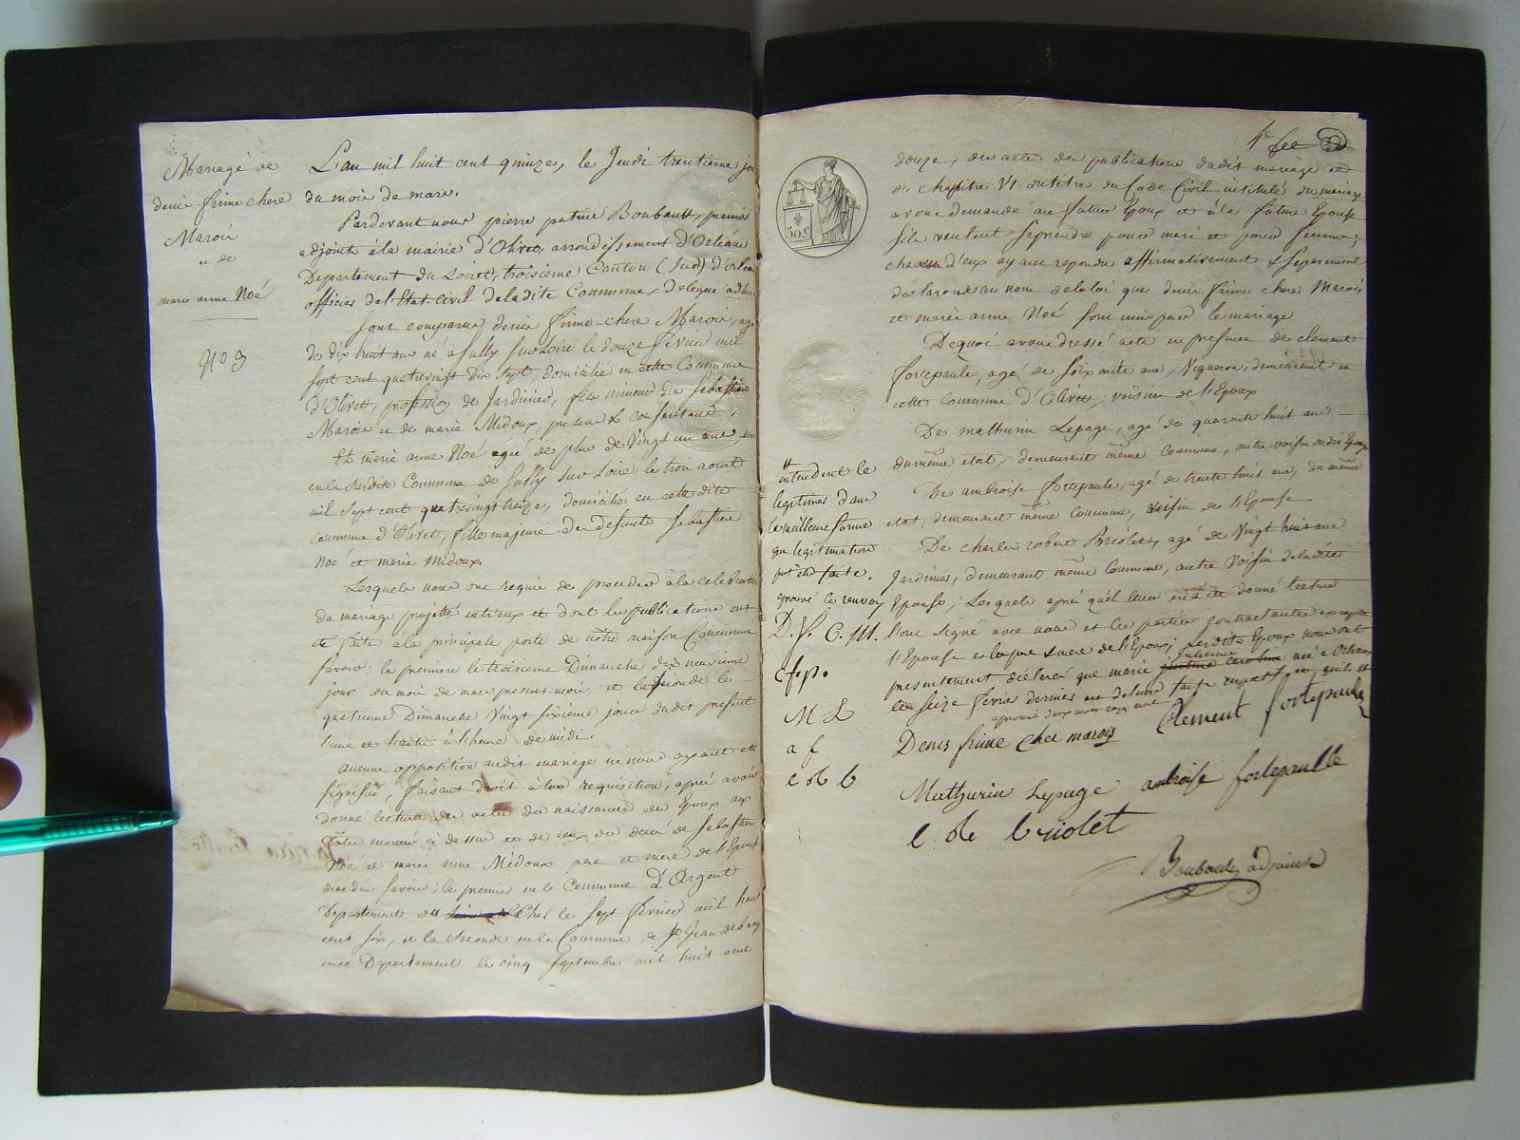 Mariage de
denis firme chere
Marois
et de
marie anne Noé
No 9
L'an mil huit cent quinze, le Jeudi trentieme jour
du mois de mars.
Pardevant nous pierre patrice Boubault, premier
adjoint à la mairie d'Olivet, arrondissement d'Orléans
Département du Loiret, troisieme Canton (Sud) d'orléans
officier de l'Etat Civil de ladite Commune, délégué
Sont comparus, denis firme-chere Marois, agé
de dix huit ans né a Sully sur Loire le douze février mil
sept cent quatrevingt dix sept, domicilié en cette Commune
d'Olivet, profession de Jardinier, fils mineur de Sébastien
Marois et de marie Midoux present & consentant;
Et marie anne Noé agée de plus de vingt un ans, née
en la susdite Commune de Sully sur Loire le trois aout
mil sept cent quatrevingt treize, domiciliée en cette dite
commune d'Olivet, fille majeure de defunts Sébastien
Noé et marie Midoux
Lesquels nous ont requis de proceder à la celebration
du mariage projetté entr'eux et dont les publications ont
été faites a la principale porte de notre maison Commune
savoir: la premiere le troisieme Dimanche dix neuvieme
jour du mois de mars present mois, et la seconde le
quatrieme Dimanche vingt sixieme jour dudit present
l'une et l'autre à l'heure de midi.
aucune opposition audit mariage ne nous ayant été
signifiée, faisant droit à leur requisition, après avoir
donné lecture des actes de naissances des Epoux
Noé et marie anne Midoux pere et mere de l'Epouse
savoir; le premier en la Commune d'Argent
Département du Cher le sept février mil huit
cent six, et la seconde en la Commune de St Jean
Département le cinq septembre mil huit cent
50 c
douze, des actes de publications dudit mariage et
du chapitre VI du titre du Code Civil intitulé du mariage
avons demandé au futur Epoux et à la future Epouse
s'ils veulent se prendre pour mari et pour femme;
chacun d'eux ayant repondu affirmativement & separement
déclarons au nom de la loi que denis firme chere Marois
et marie anne Noé sont unis par le mariage
De quoi avons dressé acte en presence de clement
fortepaule, agé de soixante ans, Vigneron, demeurant en
cette commune d'Olivet, voisin de l'Epoux
De mathurin Lepage, agé de quarante huit ans
du même etat, demeurant même commune, autre voisin de l'Epoux
De ambroise fortepaule, agé de trente huit ans, du même
etat, demeurant même commune, voisin de l'Epouse
De charles robert Briolet, agé de vingt huit ans
Jardinier, demeurant même commune, autre voisin de ladite
Epouse; Lesquels après qu'il leur en a été donné lecture
l'ont signé avec nous et les parties contractantes excepté
l'Epouse et les pere & mere de l'Epoux; lesdits Epoux nous ont
presentement déclaré que marie née a Orléans
le seize fevrier dernier
entendent le
legitimer dans
la meilleure forme
que legitimation
puisse etre faite.
aprouvé le renvoy
D. f. C. M.
C f. p.
M L
a f
C d B
Denis firme cher marois
Clement fortepaule
Mathurin Lepage
ambroise fortepaulle
C. de briolet
Boubault adjoint